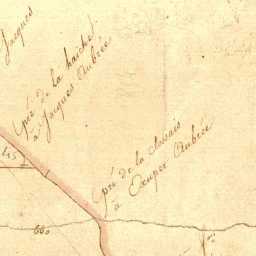 Jacques
pré de la haiche
a Jacques Aubrée
pré de la
à Exuper Aubrée
660